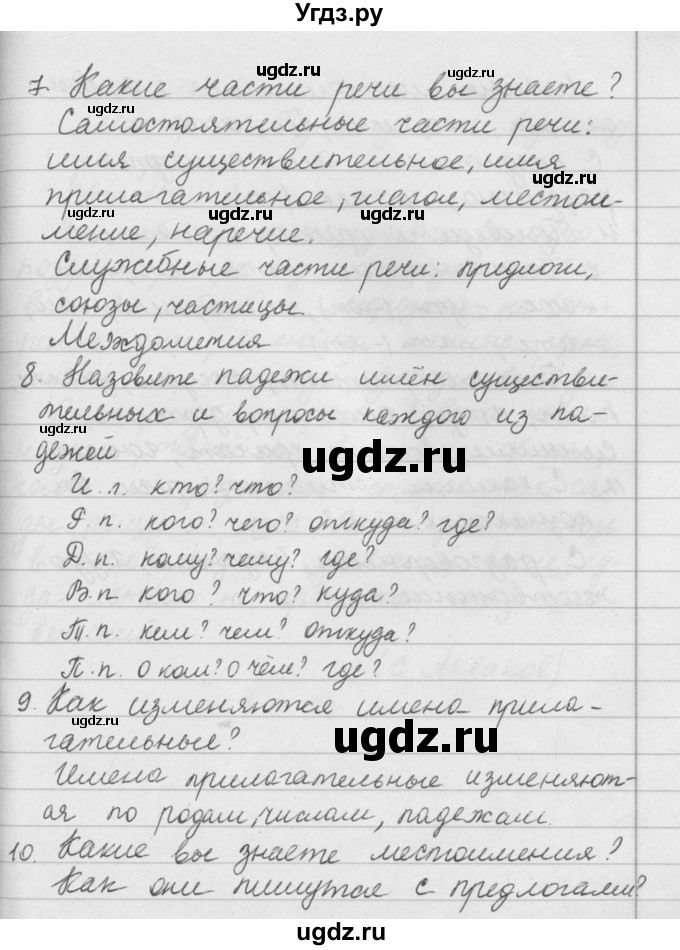 Угдз.ру
7. Какие части речи вы знаете?
Самостоятельные части речи:
имя существительное, имя
прилагательное, глагол, местои-
мение, наречие.
Служебные части речи: предлоги,
союзы, частицы.
Междометия
8. Назовите падежи имён существи-
тельных и вопросы каждого из па-
дежей
И.п. кто? что?
Р.п. кого? чего? откуда? где?
Д.п. кому? чему? где?
В.п кого? что? куда?
Т.п. кем? чем? откуда?
П.п. О ком? О чём? где?
9. Как изменяются имена прила-
гательные?
Имена прилагательные изменяют-
ся по родам, числам, падежам.
10. Какие вы знаете местоимения?
Как они пишутся с предлогами?
ugdz.ru
ugdz.ru
ugdz.ru
ugdz.ru
ugdz.ru
ugdz.ru
ugdz.ru
ugdz.ru
ugdz.ru
ugdz.ru
ugdz.ru
ugdz.ru
ugdz.ru
ugdz.ru